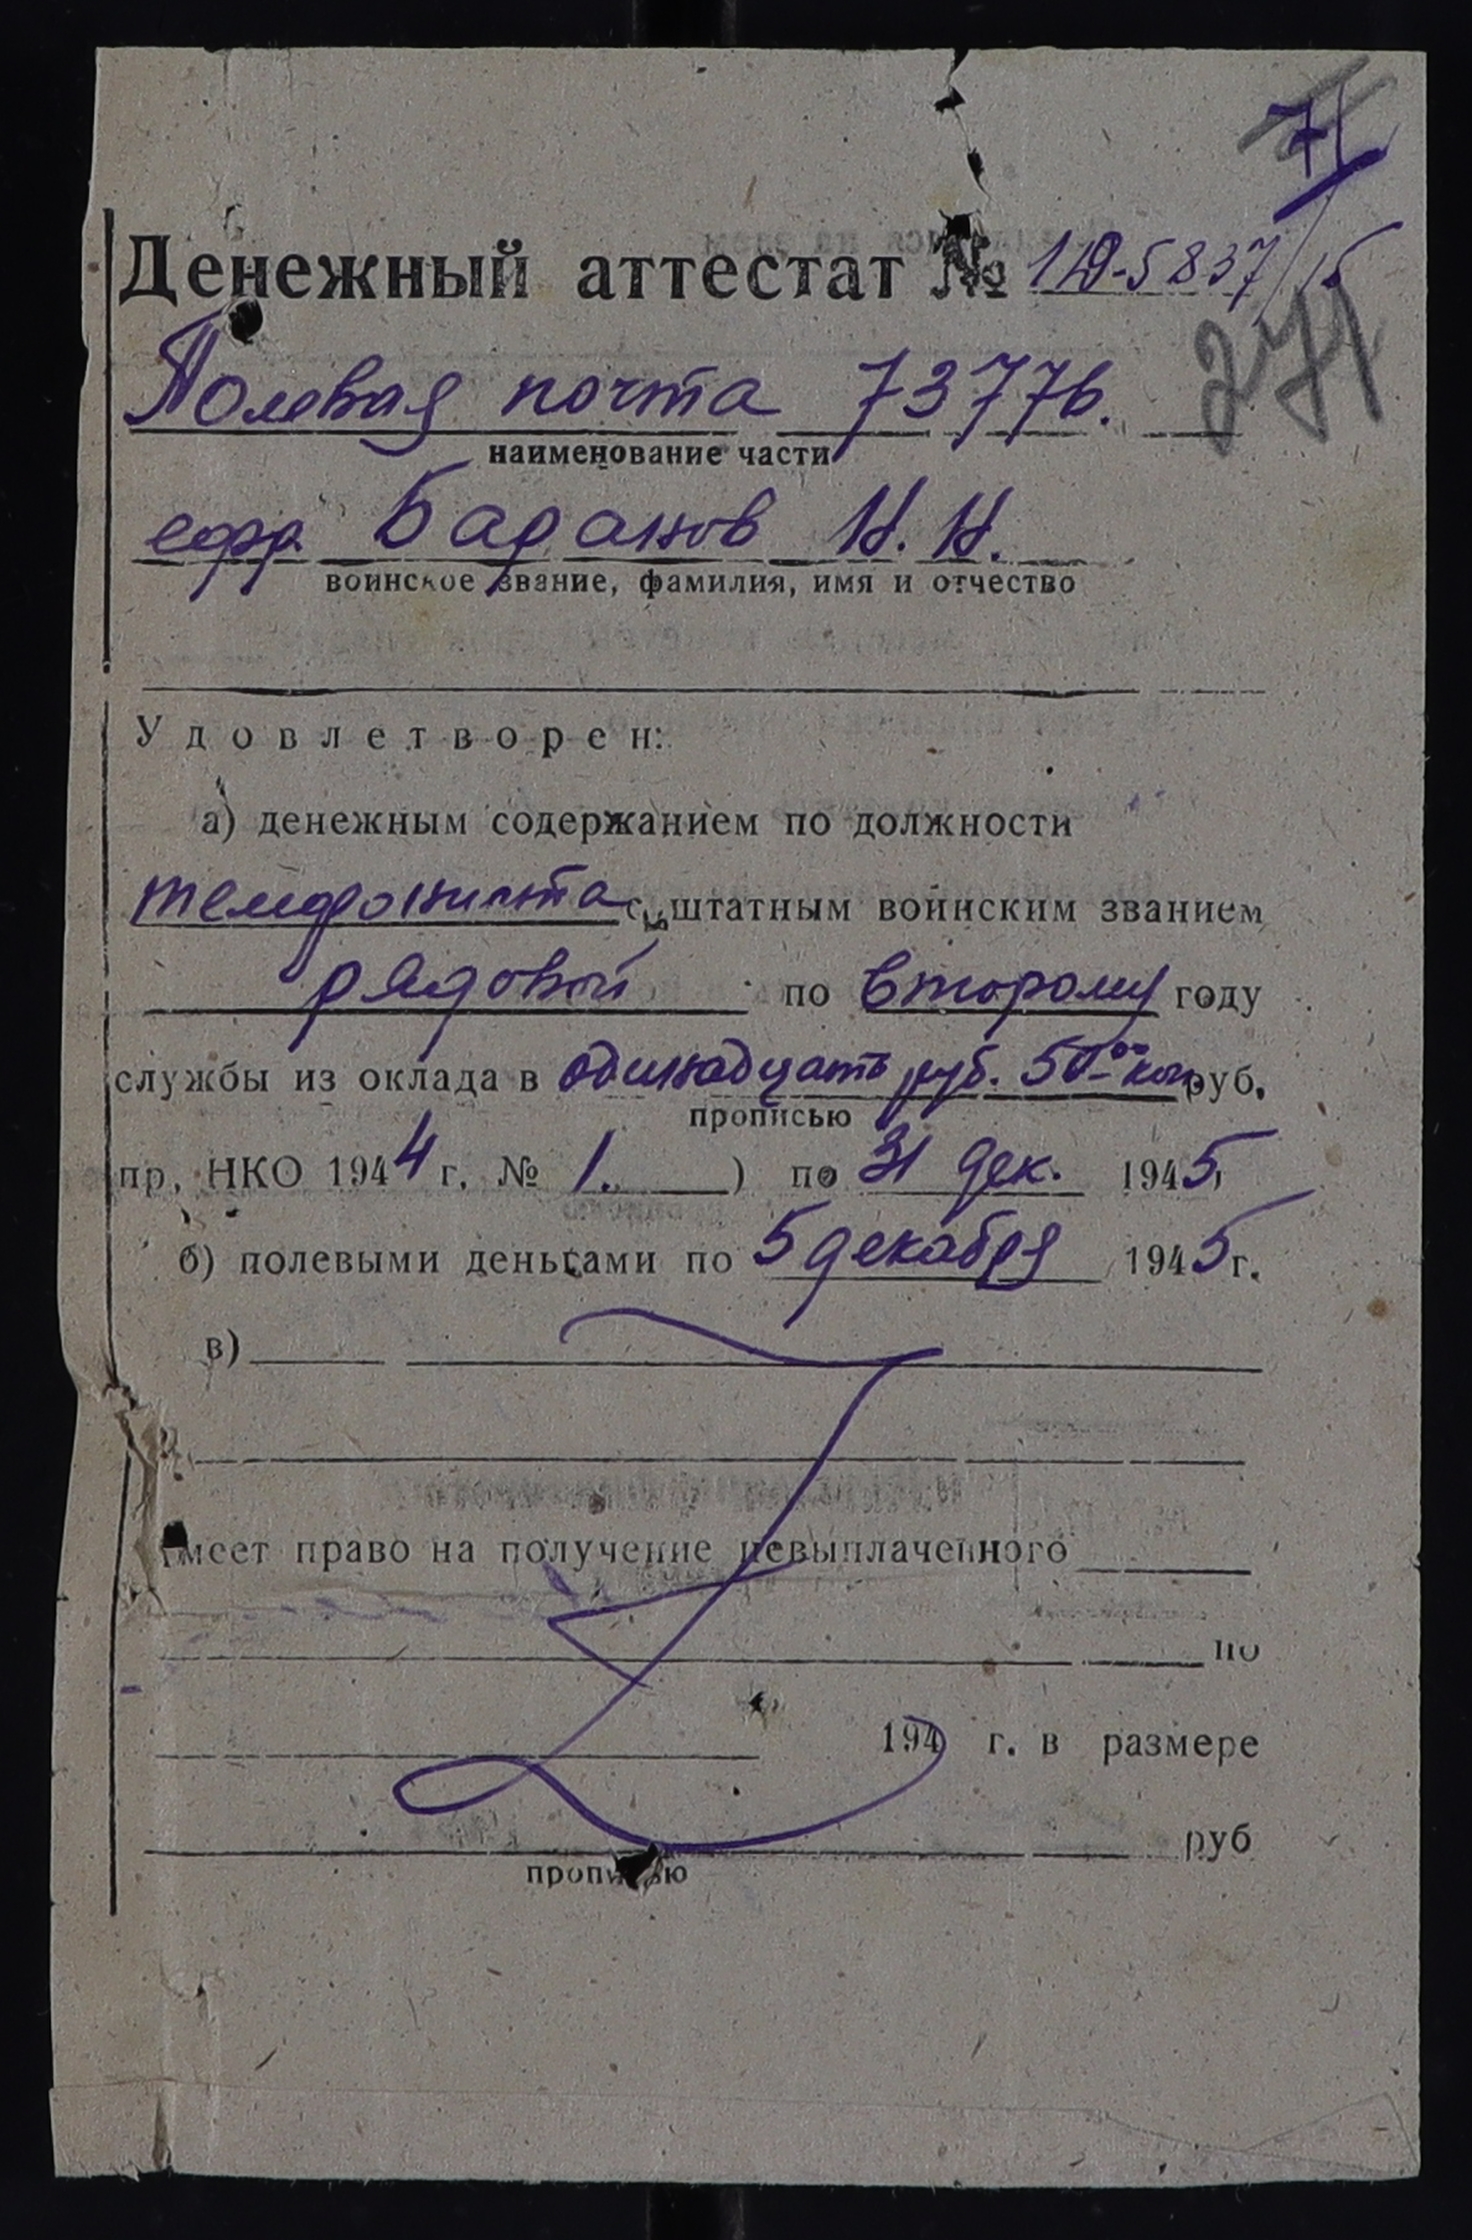 71
Денежный аттестат № 1/Ф-5837/15
271
Полевая почта 73776.
наименование части
ефр. Баранов Н. Н.
воинское звание, фамилия, имя и отчество
Удовлетворен:
а) денежным содержанием по должности
телефониста с штатным воинским званием
рядовой по второму году
службы из оклада в одинадцать руб. 50 коп. руб.
прописью
пр. НКО 1944 г. № 1. ) по 31 дек. 1945
б) полевыми деньгами по 5 декабря 1945 г.
в)
имеет право на получение невыплаченного
по
194 г. в размере
руб
прописью